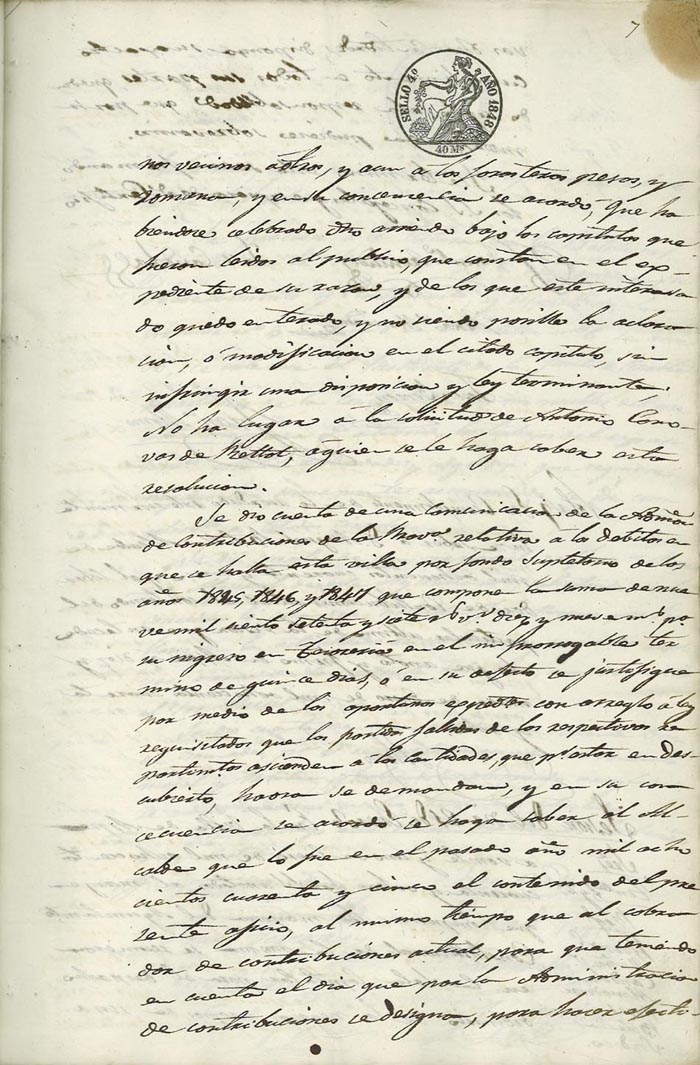 7
SELLO 4º AÑO 1848
40 Ms
nos vecinos á otros, y aun a los forasteros pesos, y
romana, y en su concecuencia se acordó, que ha
biendose celebrado dho arriendo bajo los capitulos que
fueron leidos al publico, que constan en el ex-
pediente de su razon, y de los que este interesa
do quedo enterado, y no siendo posible la aclara
cion, ó modificacion en el citado capitulo, sin
infringir una disposicion y ley terminante;
No ha lugar á la solicitud de Antonio Cano-
vas de Rettot, á quien se le haga saber esta
resolucion.
Se dio cuenta de una comunicacion de la Admon
de Contribuciones de la Prova relativa á los debitos en
que se halla esta villa por fondo Supletorio de los
años 1845, 1846, y 1847 que componen la suma de nue
ve mil ciento setenta y siete rs vn diez y nueve ms pa
su ingreso en Tesoreria en el improrrogable ter
mino de quince dias, ó en su defecto se justifique
por medio de los oportunos espedtes con arreglo á ley
requisitados que las partidas fallidas de los respectivos re
partimtos ascienden a las cantidades, que pr estar en Des
cubierto, haora se demandan, y en su con
cecuencia se acordó se haga saber al Al-
calde que lo fue en el pasado año mil ocho
cientos cuarenta y cinco el contenido del pre
sente oficio, al mismo tiempo que al cobra
dor de contribuciones actual, para que teniendo
en cuenta el dia que por la Administracion
de contribuciones se designa, para hacer efecti-